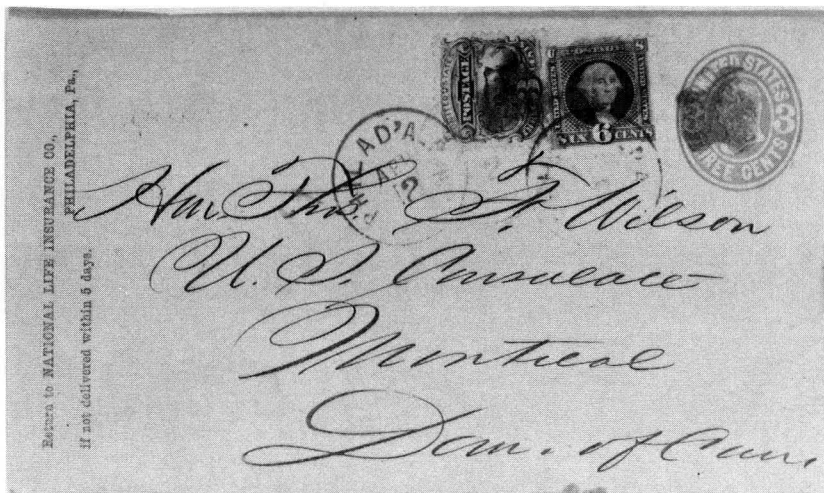 Return to NATIONAL LIFE INSURANCE CO.,
PHILADELPHIA, Pa.,
if not delivered within 5 days.
POSTAGE
U S
SIX 6 CENTS
UNITED STATES
THREE CENTS
PHILAD'A
12
Hon. Thos. F. Wilson
U. S. Consulate
Montreal
Dom. of Can.